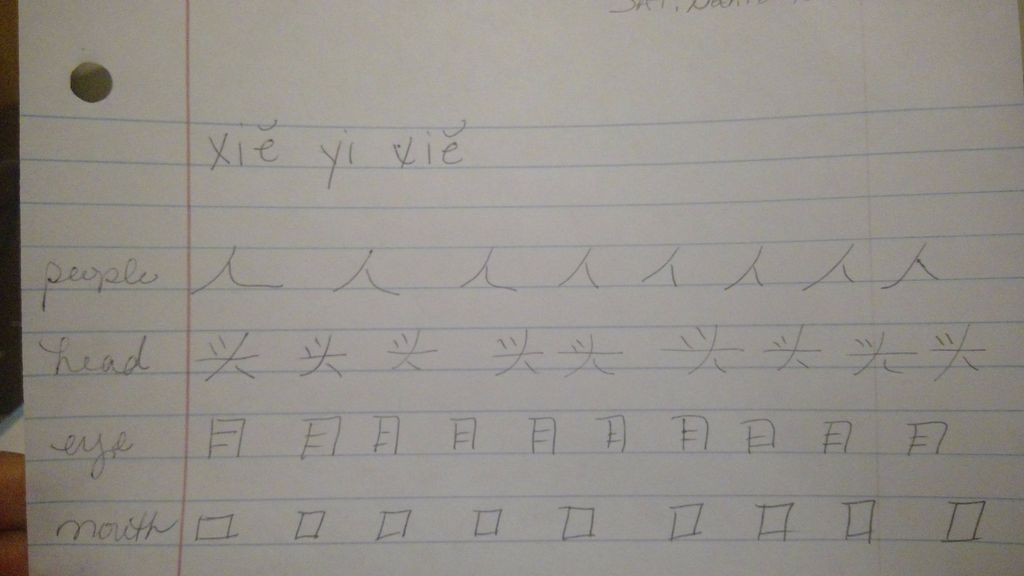 SAT.
xiě yi xiě
people 人 人 人 人 人 人 人 人
head 头 头 头 头 头 头 头 头 头
eye 目 目 目 目 目 目 目 目 目 目
mouth 口 口 口 口 口 口 口 口 口